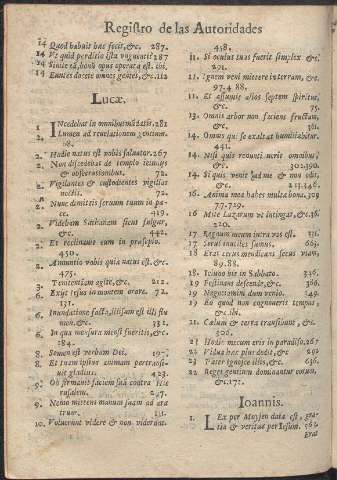 Registro de las Autoridades
14 Quod habuit hæc fecit, &c. 287.
14 Vt quid perditio ista vnguenti? 287
14 Sinite eã, bonũ opus operata est. ibi.
14 Euntes docete omnes gentes, &c. 112
Lucæ.
1. INcedebat in omnibus mãdatis. 281
2. Lumen ad reuelationem gentium.
2. Hodie natus est vobis saluator. 267
2. Non discedebat de templo ieiunijs & obsecrationibus. 72.
2. Vigilantes & custodientes vigilias noctis. 72.
2. Nunc dimittis seruum tuum in pace. 419.
2. Videbam Sathanam sicut fulgur, &c. 442.
2. Et reclinauit eum in præsepio. 450.
2. Annuntio vobis quia natus est, &c. 475.
3. Pœnitentiam agite, &c. 212.
6. Exijt Iesus in montem orare. 72.
6. Inundatione facta, illisum est flumen, &c. 332.
6. In qua mensura mensi fueritis, &c. 284.
8. Semen est verbum Dei. 197.
8. Et tuam ipsius animam pertransiuit gladius. 423.
9. Obfirmauit faciem suã contra Ierusalem. 247.
9. Nemo mittens manum suam ad aratrum.
10. Voluerunt videre & non viderunt.
458.
11. Si oculus tuus fuerit simplex &c. 291.
11. Ignem veni mittere in terram, &c. 97. 488.
11. Et assumit alios septem spiritus, &c. 75.
13. Omnis arbor non faciens fructum, &c.
14. Omnis qui se exaltat humiliabitur. 441.
14. Nisi quis renunti auerit omnibus, &c.
14. Si quis venit ad me & non odit, &c. 213.
16. Anima mea habes multa bona. 309. 77. 719.
16. Mitte Lazarum vt intingat, &c. 36. 220.
17. Regnum meum intra vos est. 331.
17. Serui inutiles sumus. 665.
18. Erat cæcus mendicans secus viam, 89. 88.
18. Ieiuno bis in Sabbato. 336.
19 Festinans descende, &c. 366.
19 Negotiamini dum venio. 149.
19 Eo quod non cognoueris tempus, &c. ibi.
21. Cælum & terra transibunt, &c. 306.
23. Hodie mecum eris in paradiso. 267
22 Vidua hæc plus dedit, &c. 292
23 Pater ignosce illis, &c. 691
22 Reges gentium dominantur eorum, &c. 171.
Ioannis.
1. LEx per Moysen data est, gratia & veritas per Iesum. 562
Erat